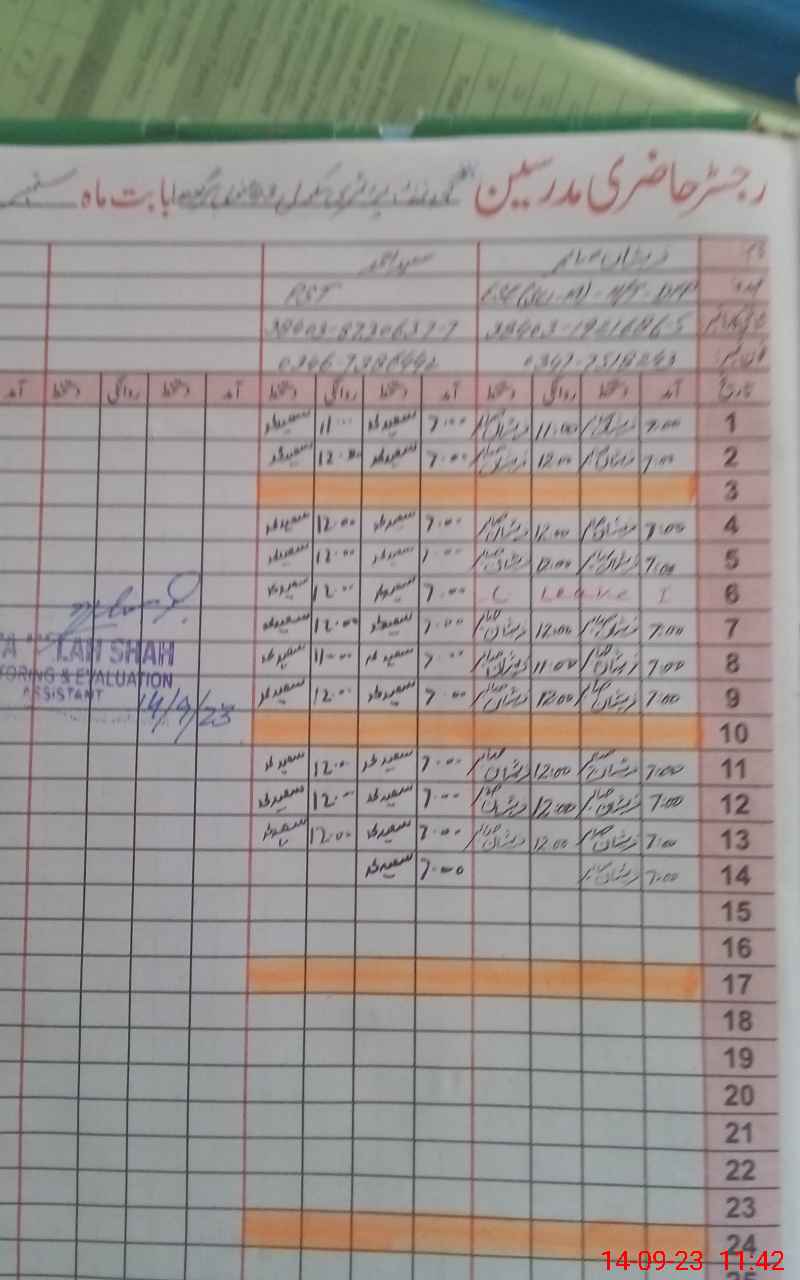 رجسٹر حاضری مدرسین بابت ماہ
نام ذیشان صابر سعید احمد
عہدہ PST
شناختی کارڈ نمبر 38403-1921686-5 38403-8730637-7
فون نمبر 0347-7518243 0346-7386442
تاریخ آمد دستخط روانگی دستخط آمد دستخط روانگی دستخط آمد دستخط روانگی دستخط آمد
1 7:00 ذیشان صابر 11:00 ذیشان صابر 7:00 سعید احمد 11:00 سعید احمد
2 7:00 ذیشان صابر 12:00 ذیشان صابر 7:00 سعید احمد 12:00 سعید احمد
3
4 7:00 ذیشان صابر 12:00 ذیشان صابر 7:00 سعید احمد 12:00 سعید احمد
5 7:00 ذیشان صابر 12:00 ذیشان صابر 7:00 سعید احمد 12:00 سعید احمد
6 C Leave 1 7:00 سعید احمد 12:00 سعید احمد
7 7:00 ذیشان صابر 12:00 ذیشان صابر 7:00 سعید احمد 12:00 سعید احمد
8 7:00 ذیشان صابر 11:00 ذیشان صابر 7:00 سعید احمد 11:00 سعید احمد
LAH SHAH
9 7:00 ذیشان صابر 12:00 ذیشان صابر 7:00 سعید احمد 12:00 سعید احمد
ORING & EVALUATION
ASSISTANT
14/9/23
10
11 7:00 ذیشان صابر 12:00 ذیشان صابر 7:00 سعید احمد 12:00 سعید احمد
12 7:00 ذیشان صابر 12:00 ذیشان صابر 7:00 سعید احمد 12:00 سعید احمد
13 7:00 ذیشان صابر 12:00 ذیشان صابر 7:00 سعید احمد 12:00 سعید احمد
14 7:00 ذیشان صابر 7:00 سعید احمد
15
16
17
18
19
20
21
22
23
24
14-09-23 11:42